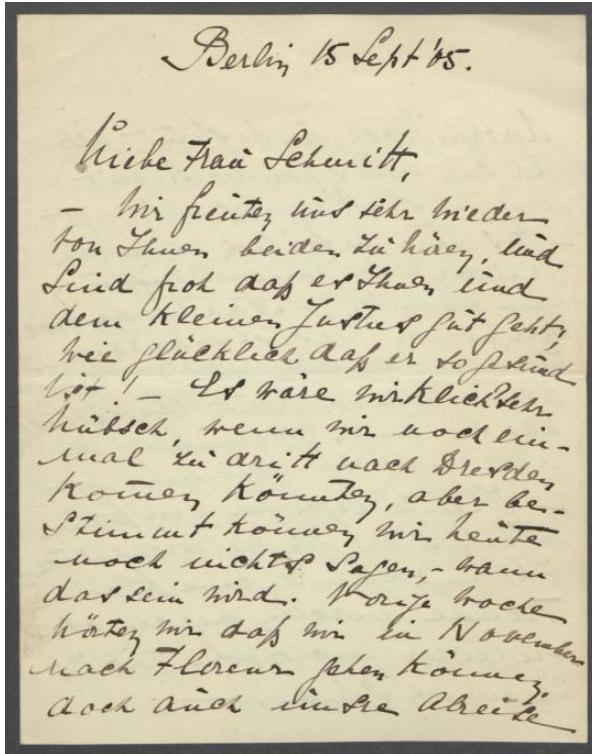 Berlin 15 Sept '05.
Liebe Frau Schmitt,
– Wir freuten uns sehr wieder
von Ihnen beiden zu hören, und
sind froh daß es Ihnen und
dem kleinen Justus gut geht,
wie glücklich daß er so gesund
ist! – Es wäre wirklich sehr
hübsch, wenn wir noch ein-
mal zu dritt nach Dresden
kom̅en könnten, aber be-
stimmt können wir heute
noch nichts sagen, – wann
das sein wird. Vorige Woche
hörten wir daß wir in November
nach Florenz gehen können,
doch auch unsre Abreise